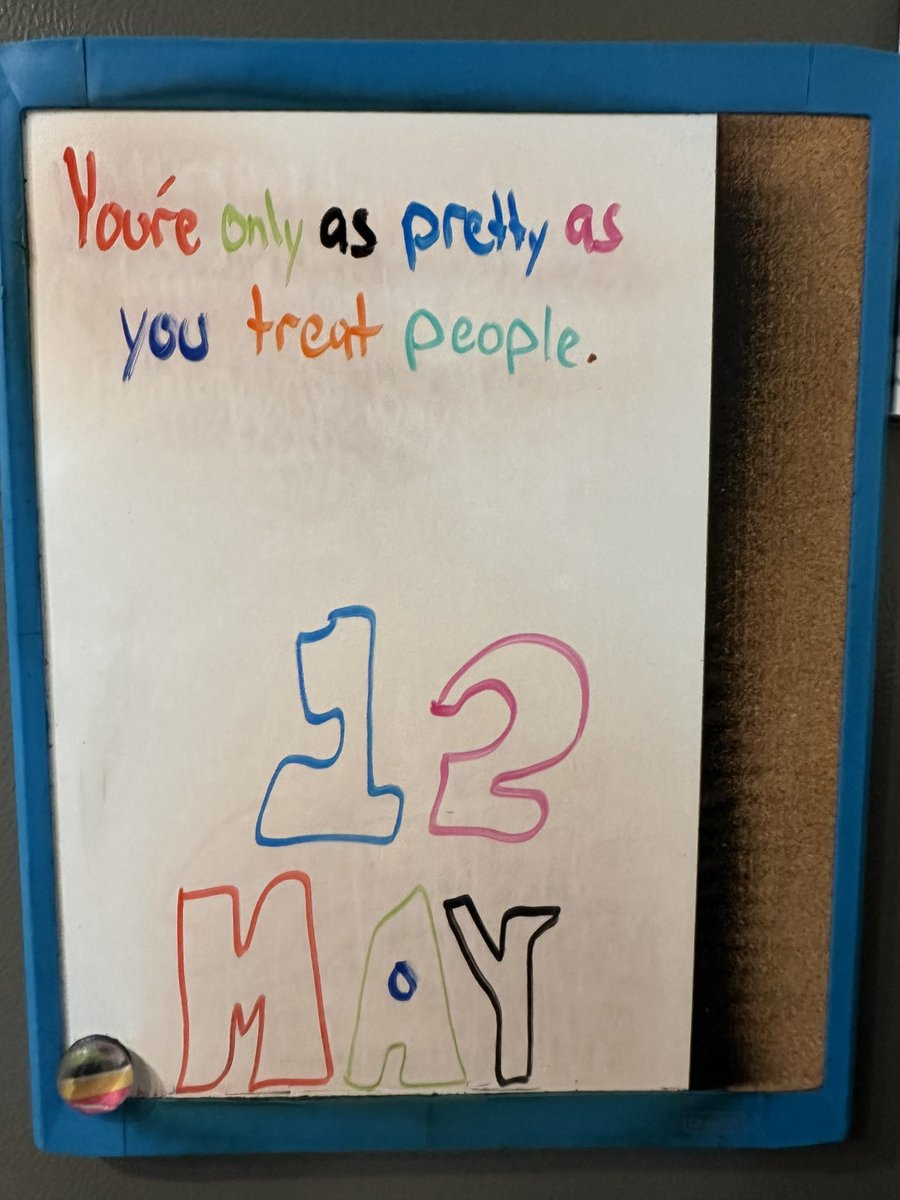 You're only as pretty as
you treat people.
12
MAY